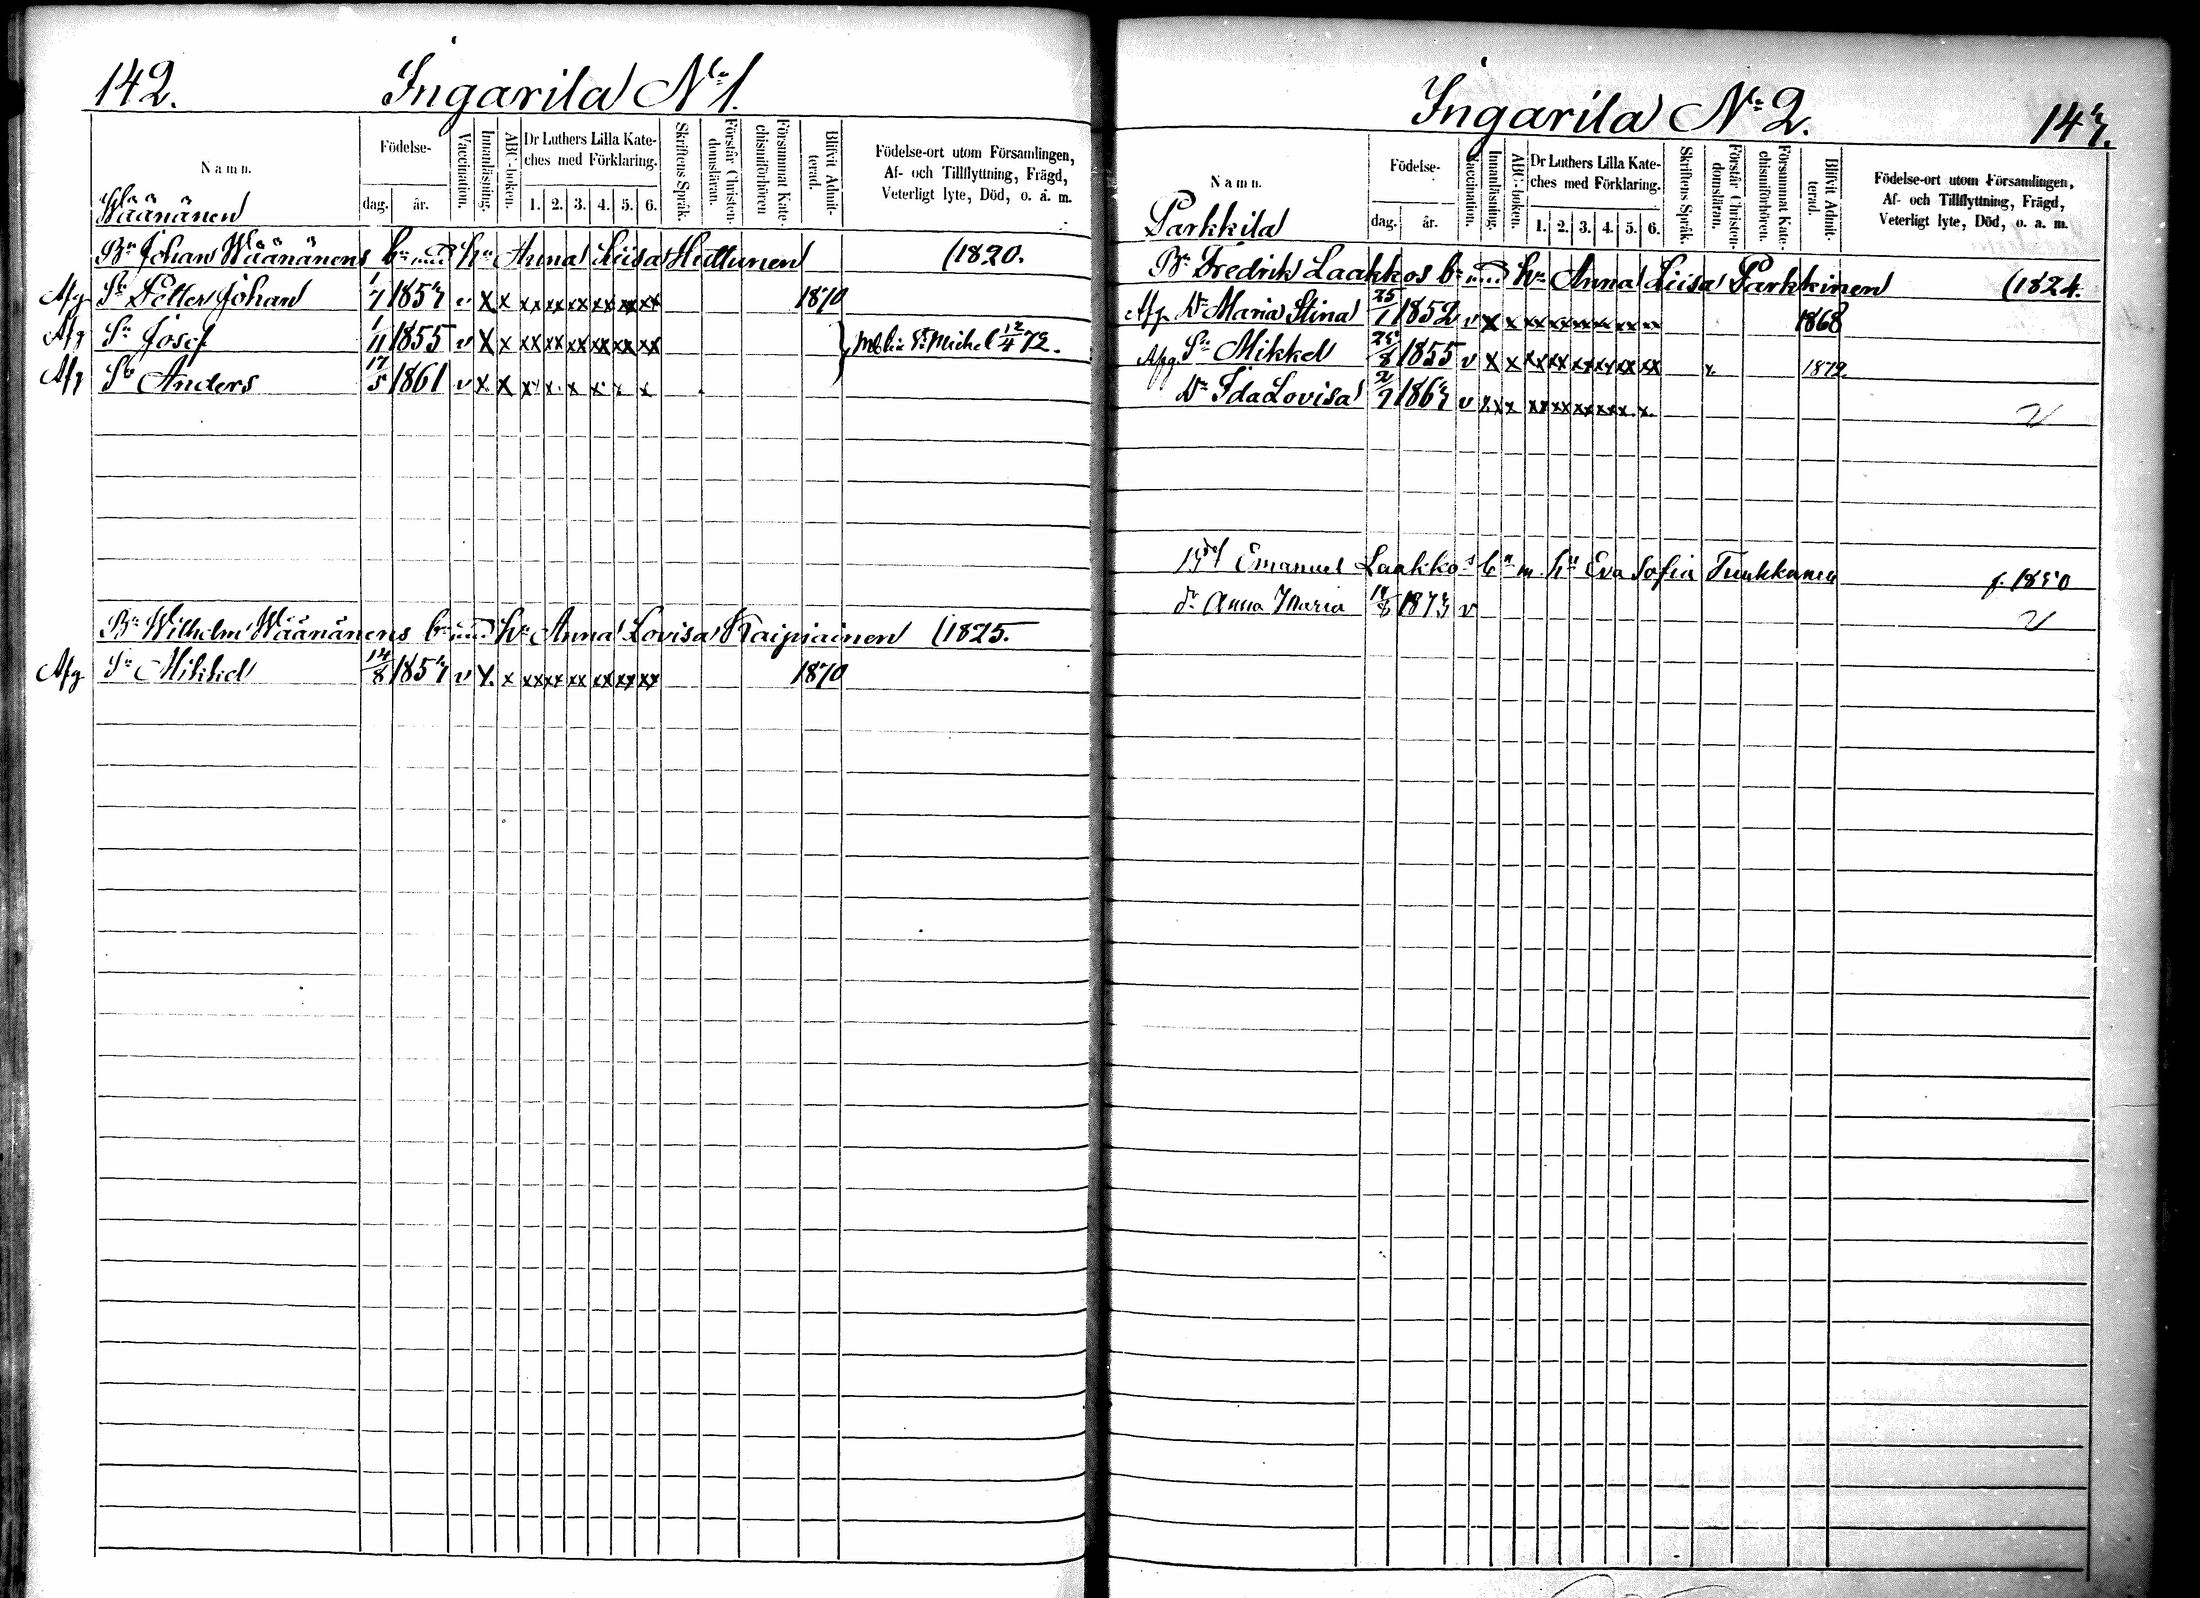 142.
Ingarila No 1.
Namn.
Födelse-
dag.
år.
Vaccination.
Innanläsning.
ABC-boken.
Dr Luthers Lilla Kate-
ches med Förklaring.
1. 2. 3. 4. 5. 6.
Skriftens Språk.
Förstår Christen-
domsläran.
Försummat Kate-
chismiförhören
Blifvit Admit-
terad.
Födelse-ort utom Församlingen,
Af- och Tillflyttning, Frägd,
Veterligt lyte, Död, o. a. m.
Wäänänen
Bn Johan Wäänänens bn med hu Anna Liisa Huttunen (1820.
Afg Sn Petter Johan 1/7 1853 v x x xx xx xx xx xx xx 1870
Afg Sn Josef 1/11 1855 v x x xx xx xx xx xx xx St Michel 12/4 72.
Afg Sn Anders 17/5 1861 v x x x x x x x x
Bn Wilhelm Wäänänens bn med hu Anna Lovisa Kaipiainen (1825.
Afg Sn Mikkel 14/8 1853 v x x xx xx xx xx xx xx 1870
Ingarila No 2.
143.
Namn.
Födelse-
dag.
år.
Vaccination.
Innanläsning.
ABC-boken.
Dr Luthers Lilla Kate-
ches med Förklaring.
1. 2. 3. 4. 5. 6.
Skriftens Språk.
Förstår Christen-
domsläran.
Försummat Kate-
chismiförhören.
Blifvit Admit-
terad.
Födelse-ort utom Församlingen,
Af- och Tillflyttning, Frägd,
Veterligt lyte, Död, o. a. m.
Parkkila
Bn Fredrik Laakkos bn med hu Anna Liisa Parkkinen (1824.
Afg Dr Maria Stina 25/1 1852 v x x xx xx xx xx xx xx 1868
Afg Sn Mikkel 25/8 1855 v x x xx xx xx xx xx xx x 1872
Dr Ida Lovisa 2/7 1863 v x x x xx xx xx xx x. x. v
Emanuel Laakkos bn m hu Eva Sofia Tuukkanen f. 1850
dr Anna Maria 1873 v v